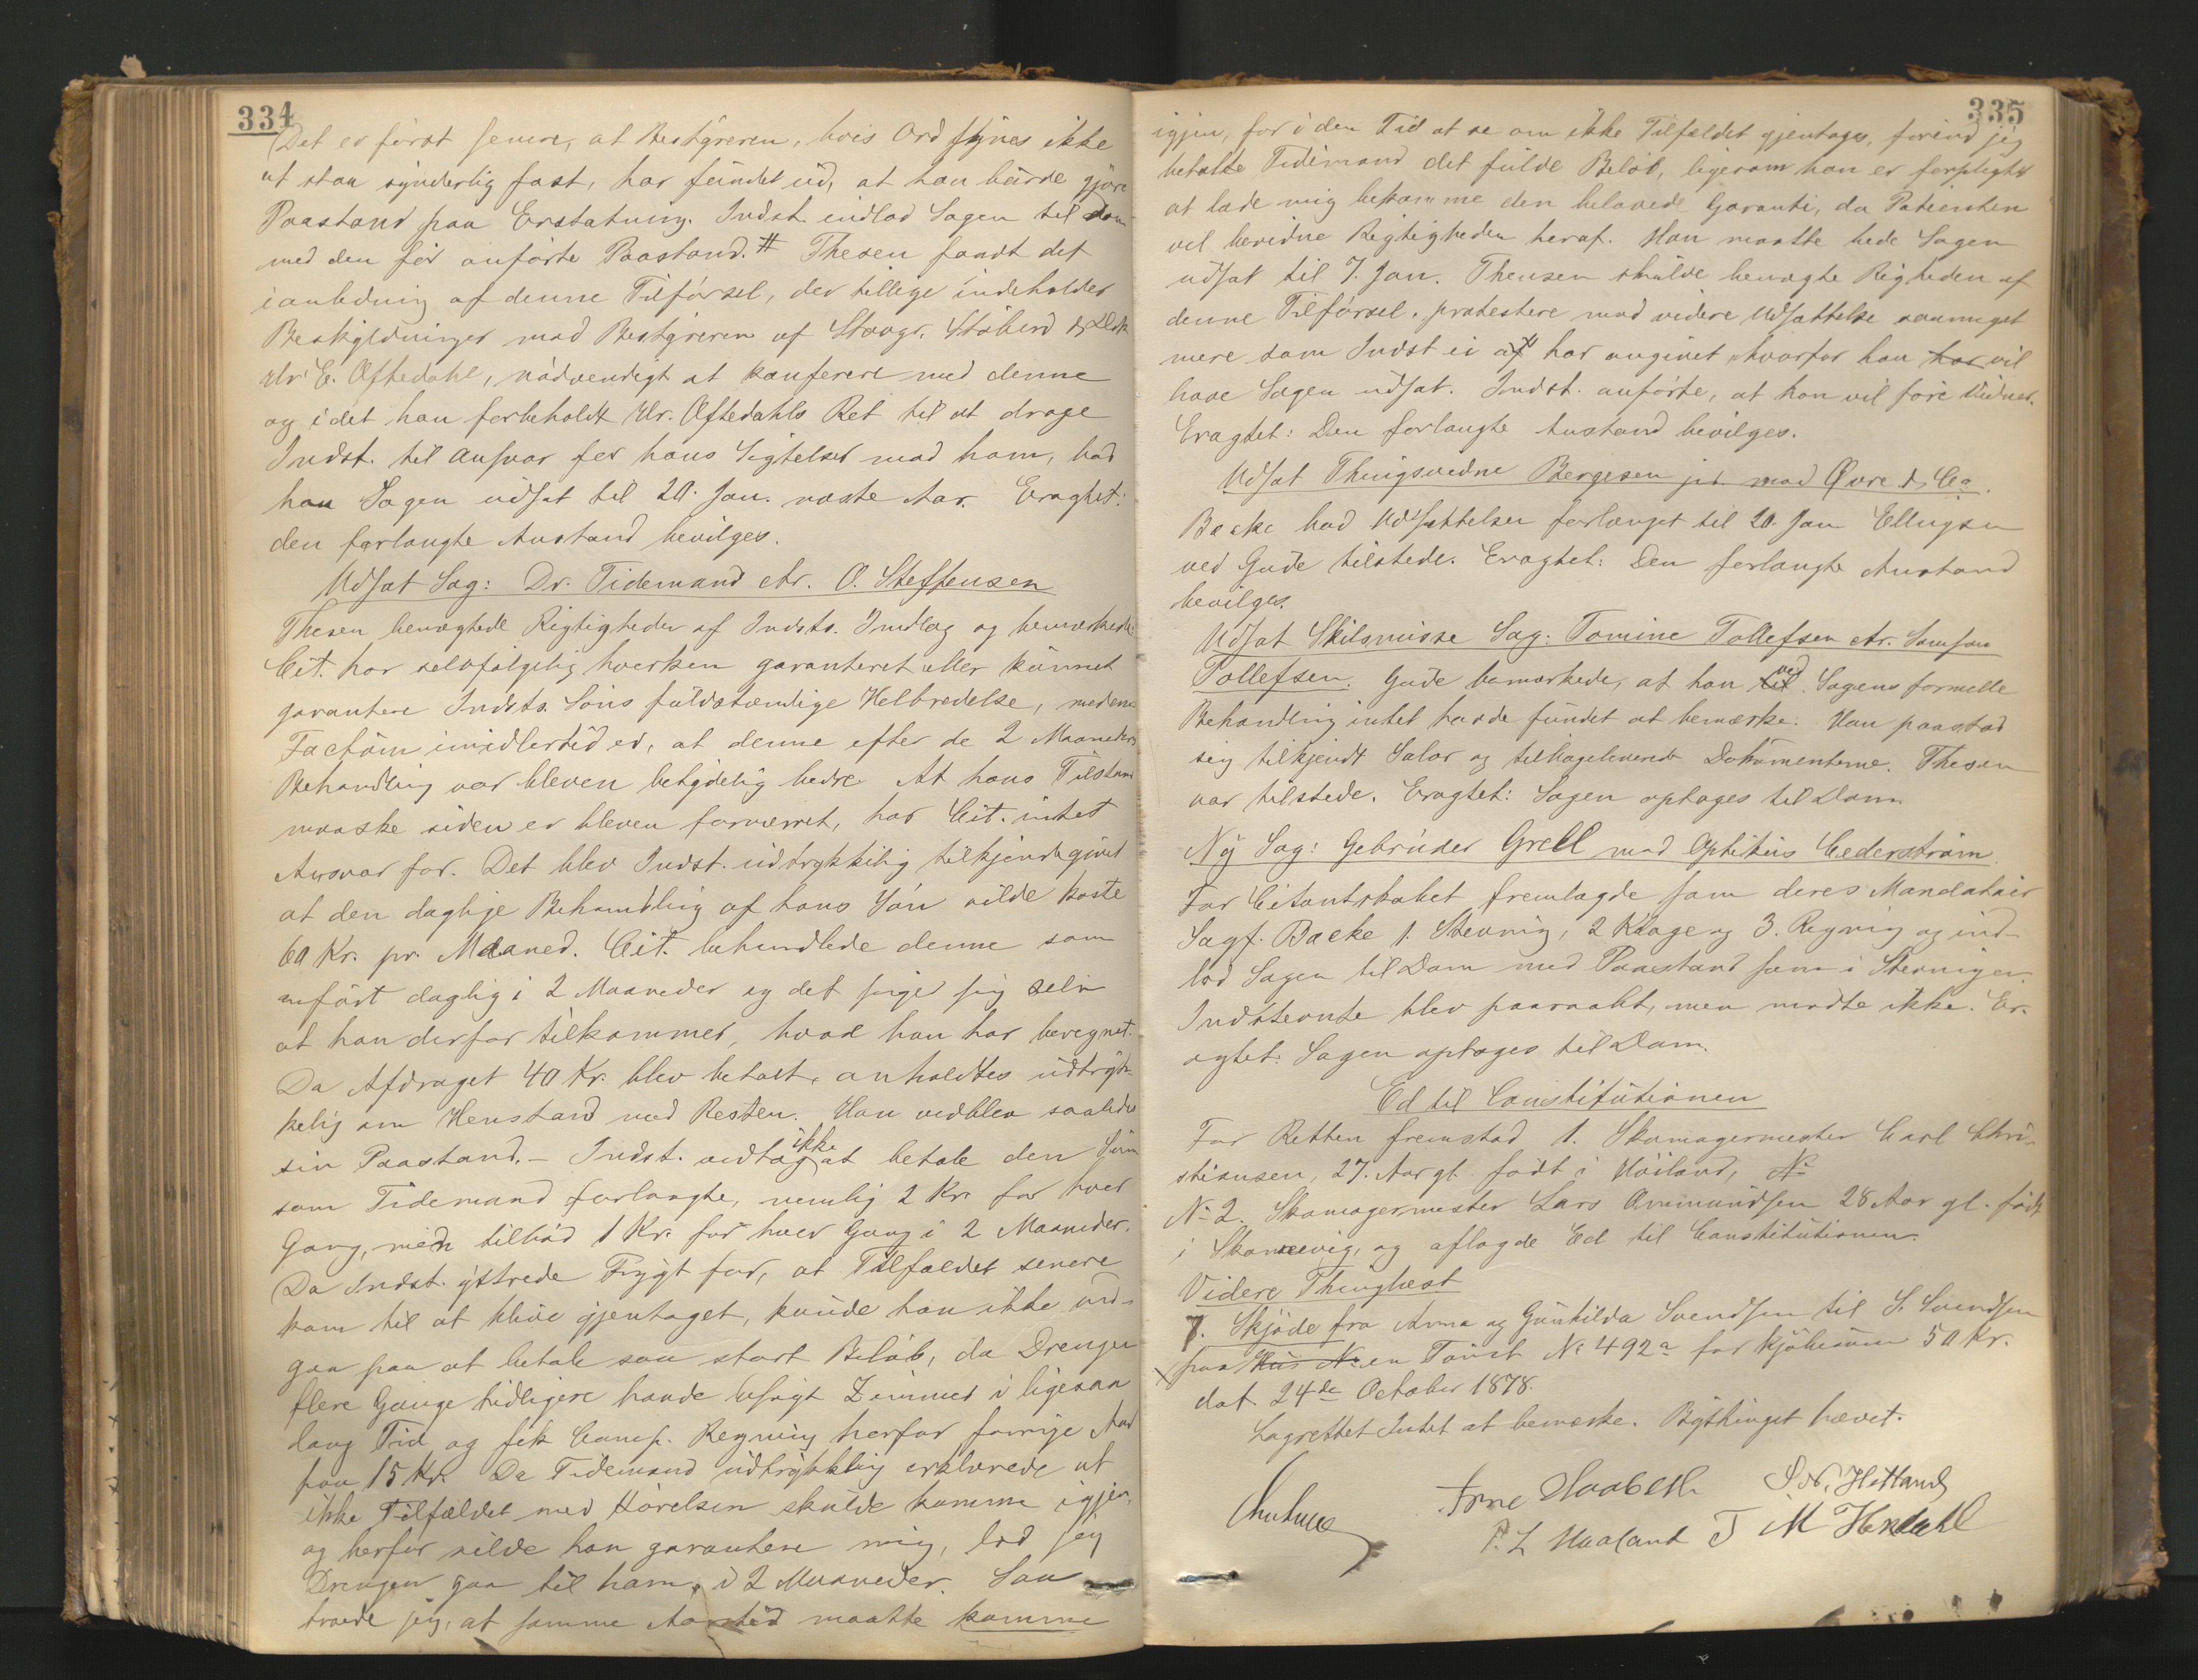 334
Det er først senere, at Bestyreren, hvis Ord synes ikke
at staa synderlig fast, har fundet ud, at han burde gjøre
Paastand paa Erstatning. Indst. indlod Sagen til Dom
med den før anførte Paastand. # Thesen fandt det
i anledning af denne Tilførsel, der tillige indeholder
Beskyldninger mod Bestyreren af Stavgr. Støberi & Dok
Hr. E. Oftedahl, nødvendigt at konferere med denne
og idet han forbeholdt Hr. Oftedahls Ret til at drage
Indst. til Ansvar for hans Sigtelser mod ham, bad
han Sagen udsat til 20. Jan. næste Aar. Eragtet:
den forlangte Anstand bevilges.
Udsat Sag: Dr. Tidemand ctr. O. Steffensen
Thesen benægtede Rigtigheden af Indsts. Indlæg og bemærkede
Cit. har selvfølgelig hverken garanteret eller kunnet
garantere Indsts. Søns fuldstændige Helbredelse, medens
Factum imidlertid er, at denne efter de 2 Maaneders
Behandling var bleven betydelig bedre. At hans Tilstand
maaske siden er bleven forværret, har Cit. intet
Ansvar for. Det blev Indst. udtrykkelig tilkjendegivet
at den daglige Behandling af hans Søn vilde koste
60 Kr. pr. Maaned. Cit. behandlede denne som
anført daglig i 2 Maaneder og det siger sig selv
at han derfor tilkommer, hvad han har beregnet.
Da Afdraget 40 Kr. blev betalt, anholdtes udtryk-
kelig om Henstand med Resten. Han vedblev saaledes
sin Paastand. – Indst. vedtog ikke at betale den Sum
som Tidemand forlangte, nemlig 2 Kr. for hver
Gang, men tilbød 1 Kr. for hver Gang i 2 Maaneder.
Da Indst. yttrede Frygt for, at Tilfældet senere
kom til at blive gjentaget, kunde han ikke ind-
gaa paa at betale saa stort Beløb, da Drengen
flere Gange tidligere havde besøgt Zimmer i ligesaa
lang Tid og fik Comp. Regning herfor forrige Aar
paa 15 Kr. Da Tidemand udtrykkelig erklærede at
ikke Tilfældet med Hørelsen skulde komme igjen,
og herfor vilde han garantere mig, lod jeg
Drengen gaa til ham i 2 Maaneder. Saa
troede jeg, at samme Aarstid maatte komme
335
igjen, for i den Tid at se om ikke Tilfældet gjentages, førend jeg
betalte Tidemand det fulde Beløb, ligesom han er forpligtet
at lade mig bekomme den belovede Garanti, da Patienten
vil bevidne Rigtigheden heraf. Han maatte bede Sagen
udsat til 7. Jan. Thesen skulde benægte Righeden af
denne Tilførsel, protestere mod videre Udsættelse saameget
mere som Indst ei har angivet, hvorfor han har vil
have Sagen udsat. Indst. anførte, at han vil føre Vidner.
Eragtet: Den forlangte Anstand bevilges.
Udsat Thingsvidne Bergesen jr. mod Øvre & Co.
Backe bad Udsættelsen forlænget til 20. Jan Ellingsen
ved Gude tilstede. Eragtet: Den forlangte Anstand
bevilges.
Udsat Skilsmisse Sag: Tomine Tollefsen ctr. Samson
Tollefsen. Gude bemærkede, at han til ved Sagens formelle
Behandling intet havde fundet at bemærke. Han paastod
sig tilkjendt Salær og tilbageleveret Dokumenterne. Thesen
var tilstede. Eragtet: Sagen optages til Dom.
Ny Sag: Gebrüder Grell mod Optikus Cederström.
For Citantskabet fremlagde som deres Mandatair
Sagf. Backe 1. Stevning, 2 Klage og 3. Regning og ind-
lod Sagen til Dom med Paastand som i Stevningen.
Indstevnte blev paaraabt, men mødte ikke. Er-
agtet: Sagen optages til Dom.
Ed til Constitutionen
For Retten fremstod 1. Skomagermester Carl Chri-
stiansen, 27. Aar gl. født i Høiland, No
No 2. Skomagermester Lars Ommundsen 28 Aar gl. født
i Skonevig, og aflagde Ed til Constitutionen.
Videre Thinglæst
7. Skjøde fra Anna og Gunhilda Svendsen til S. Svendsen
paa Hus No en Tomt No 492a for Kjøbesum 50 Kr.
dat. 24de October 1878.
Lagrettet Intet at bemærke. Bythinget hævet.
Arne Haabeth S. N. Hetland
P. L Haaland T M Hendahl